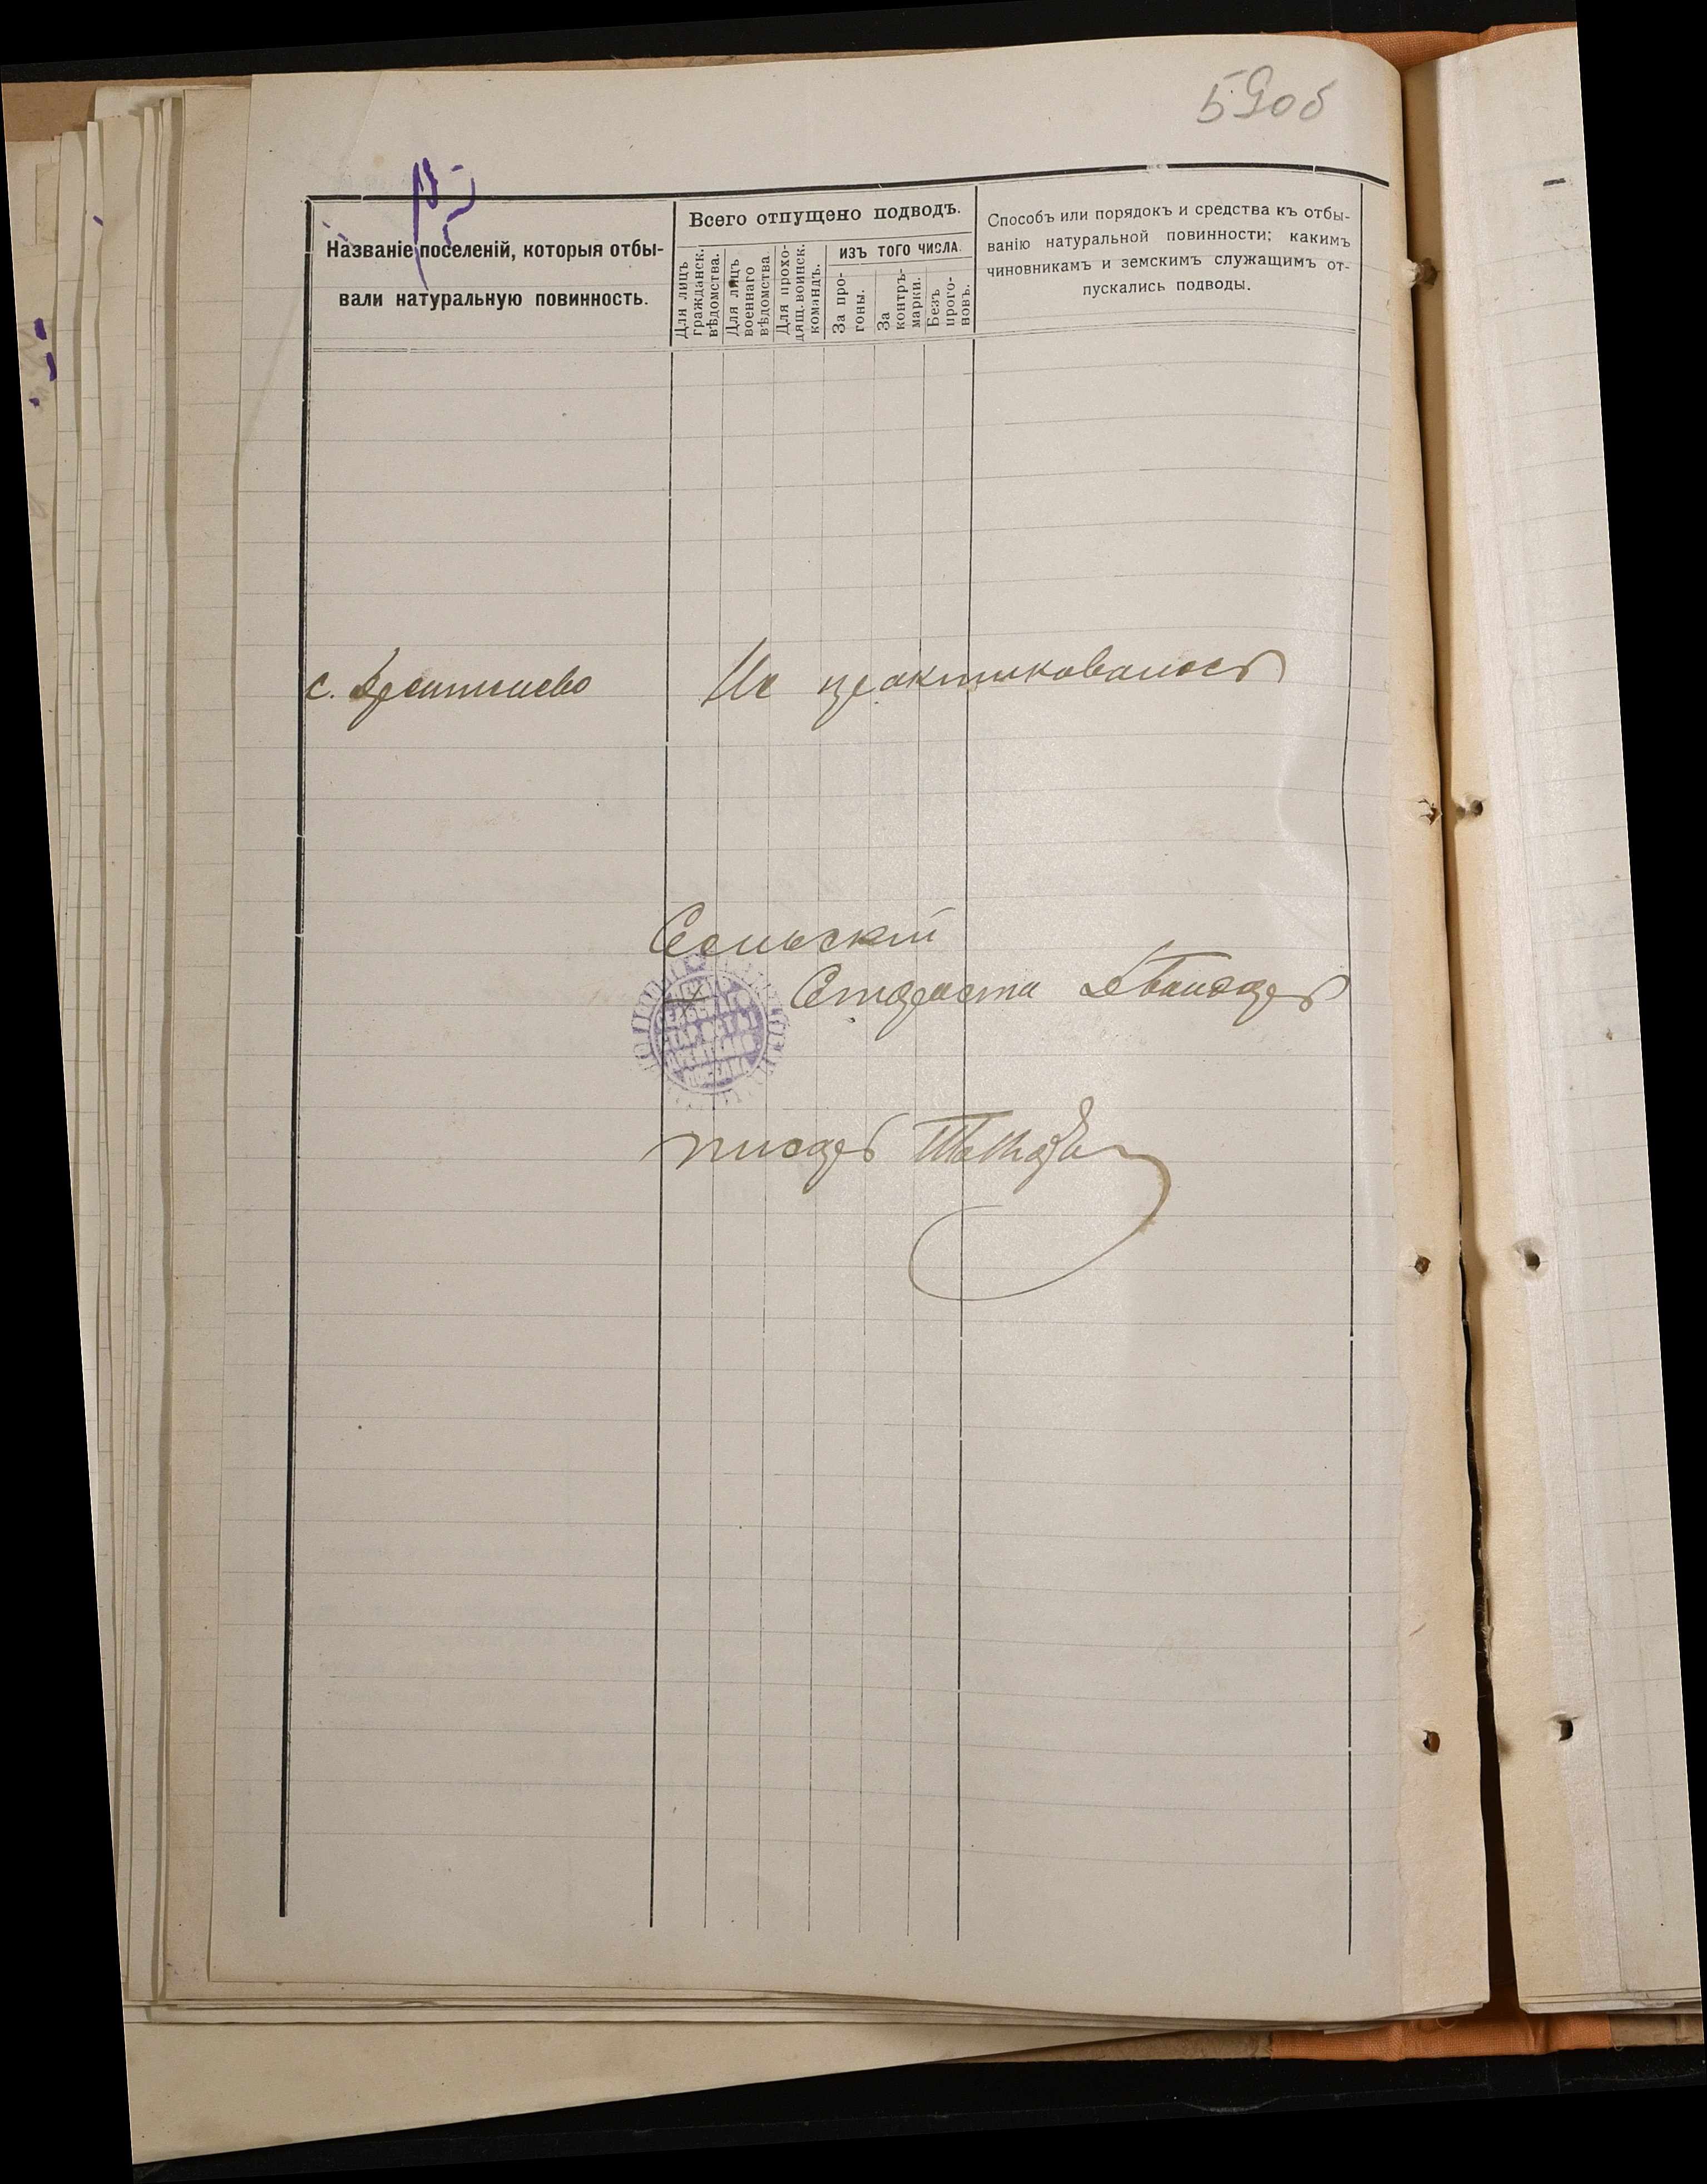 59об
Названіе поселеній, которыя отбы-
вали натуральную повинность.
Всего отпущено подводъ.
Для лицъ
гражданск.
вѣдомства.
Для лицъ
военнаго
вѣдомства.
Для прохо-
дящ. воинск.
командъ.
изъ того числа.
За про-
гоны.
За
контръ-
марки.
Безъ
прого-
новъ.
Способъ или порядокъ и средства къ отбы-
ванію натуральной повинности; какимъ
чиновникамъ и земскимъ служащимъ от-
пускались подводы.
с. Арентшево Не практиковалось
Сельскій
Староста
писарь